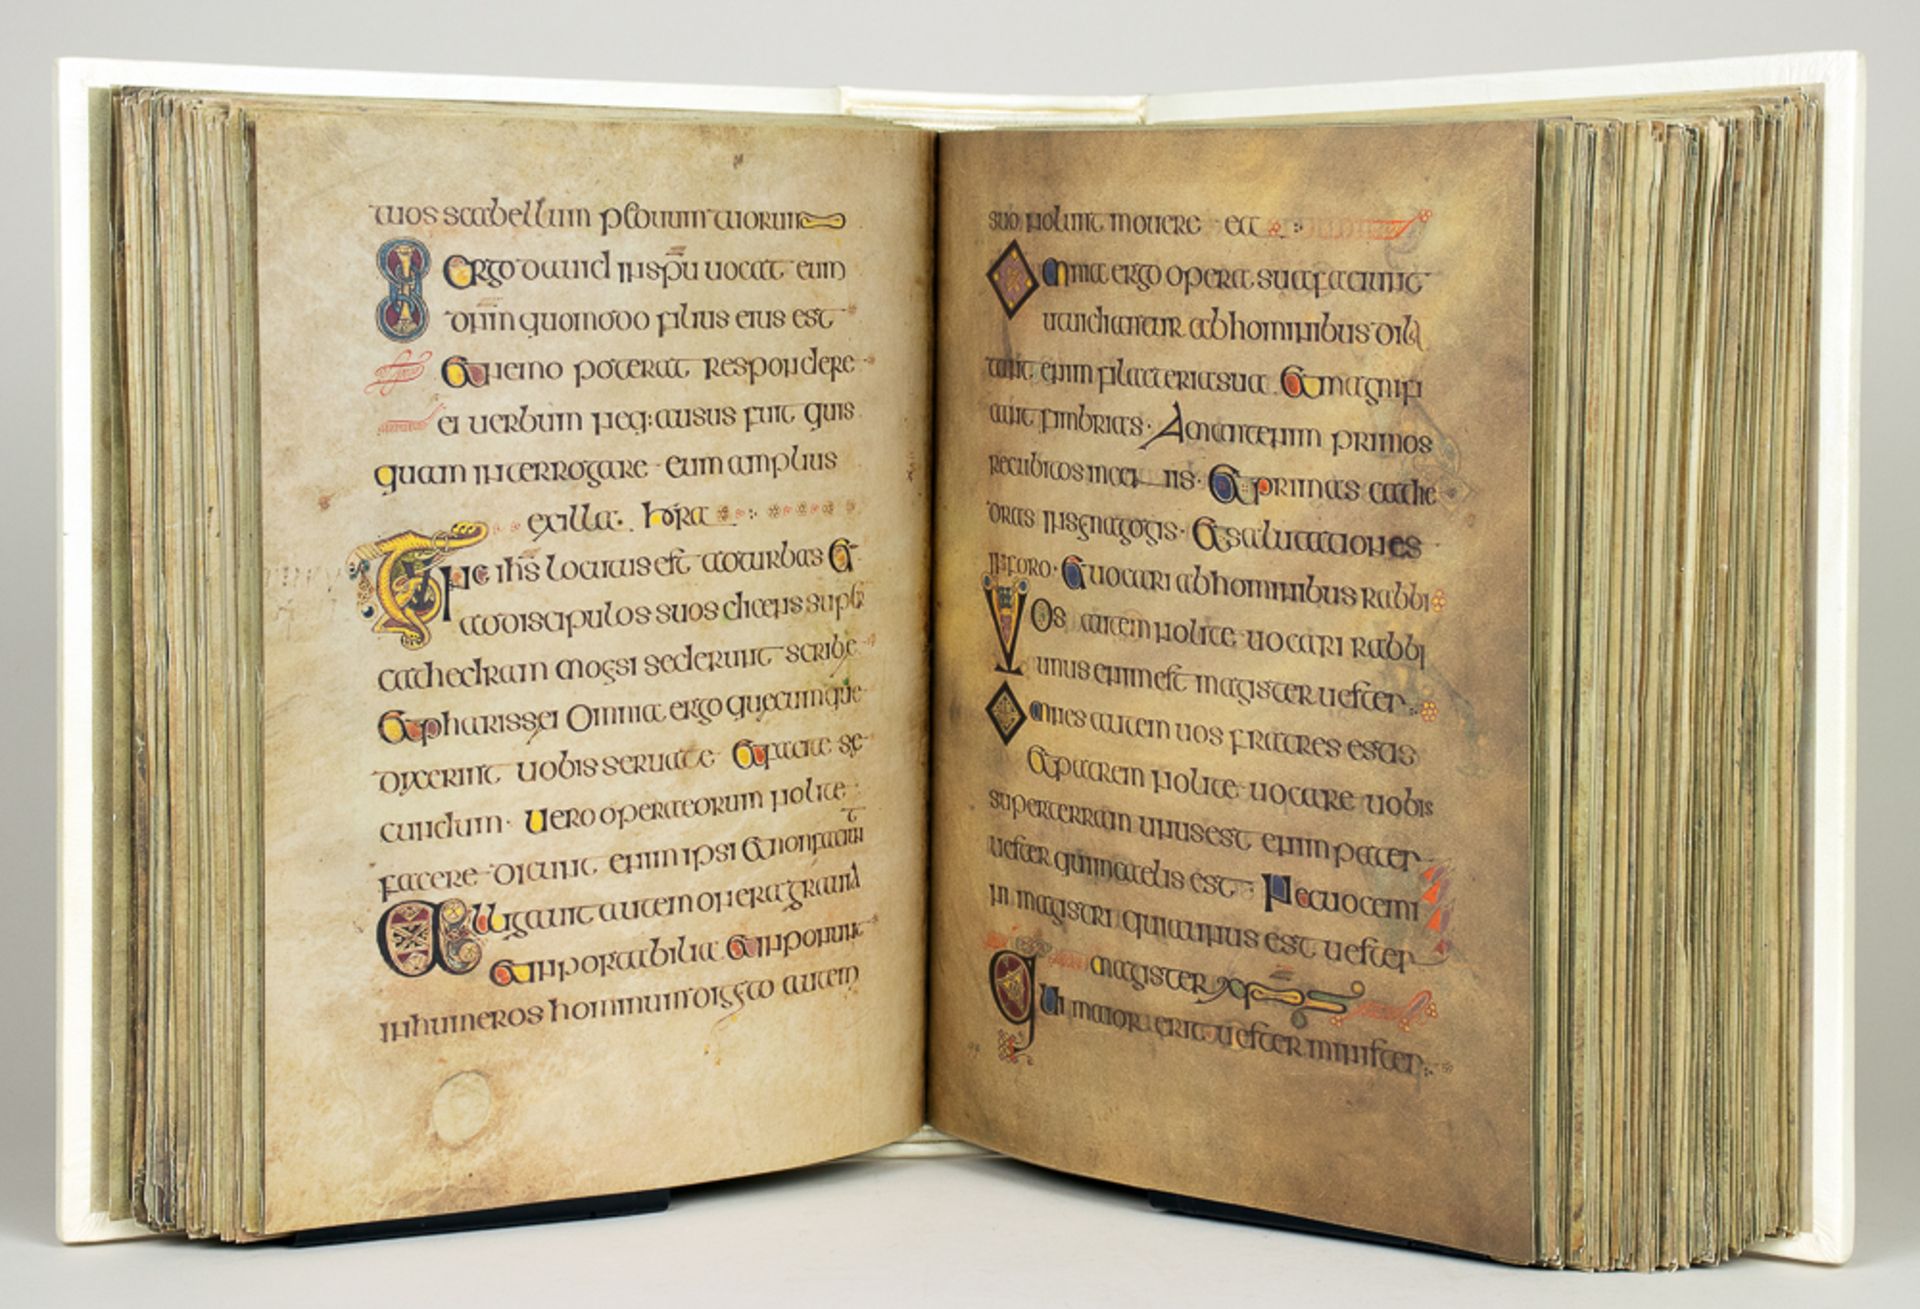 tuos scabellum pedvum tuorum
Si ergo dauid inspu uocat eum
dnm quomodo filius eius est
Et nemo poterat respondere
ei uerbum neq: ausus fuit quis
quam interrogare eum amplius
exilla hora
Tunc ihs locutus est adturbas et
addiscipulos suos dicens supr
cathedram mosi sederunt scribe
et pharissei Omnia ergo quecumque
dixerint uobis seruate et facite se
cundum Uero opera eorum nolite
facere dicunt enim ipsi et non faciunt
Alligant autem onera grauia
et inportabilia et inponunt
inhumeros hominum digito autem
suo nolunt mouere ea
Omnia ergo opera sua faciunt
utuideantur abhominibus dila
tant enim filacteria sua et magnifi
cant fimbrias Amant enim primos
recubitos in cenis et primas cathe
dras insinagogis et salutationes
inforo et uocari abhominibus rabbi
Uos autem nolite uocari rabbi
unus enim est magister uester
Omnes autem uos fratres estis
et patrem nolite uocare uobis
superterram unus est enim pater
uester qui in caelis est Nec uocemi
ni magistri quia unus est uester
magister xps
Qui maior erit uester minister